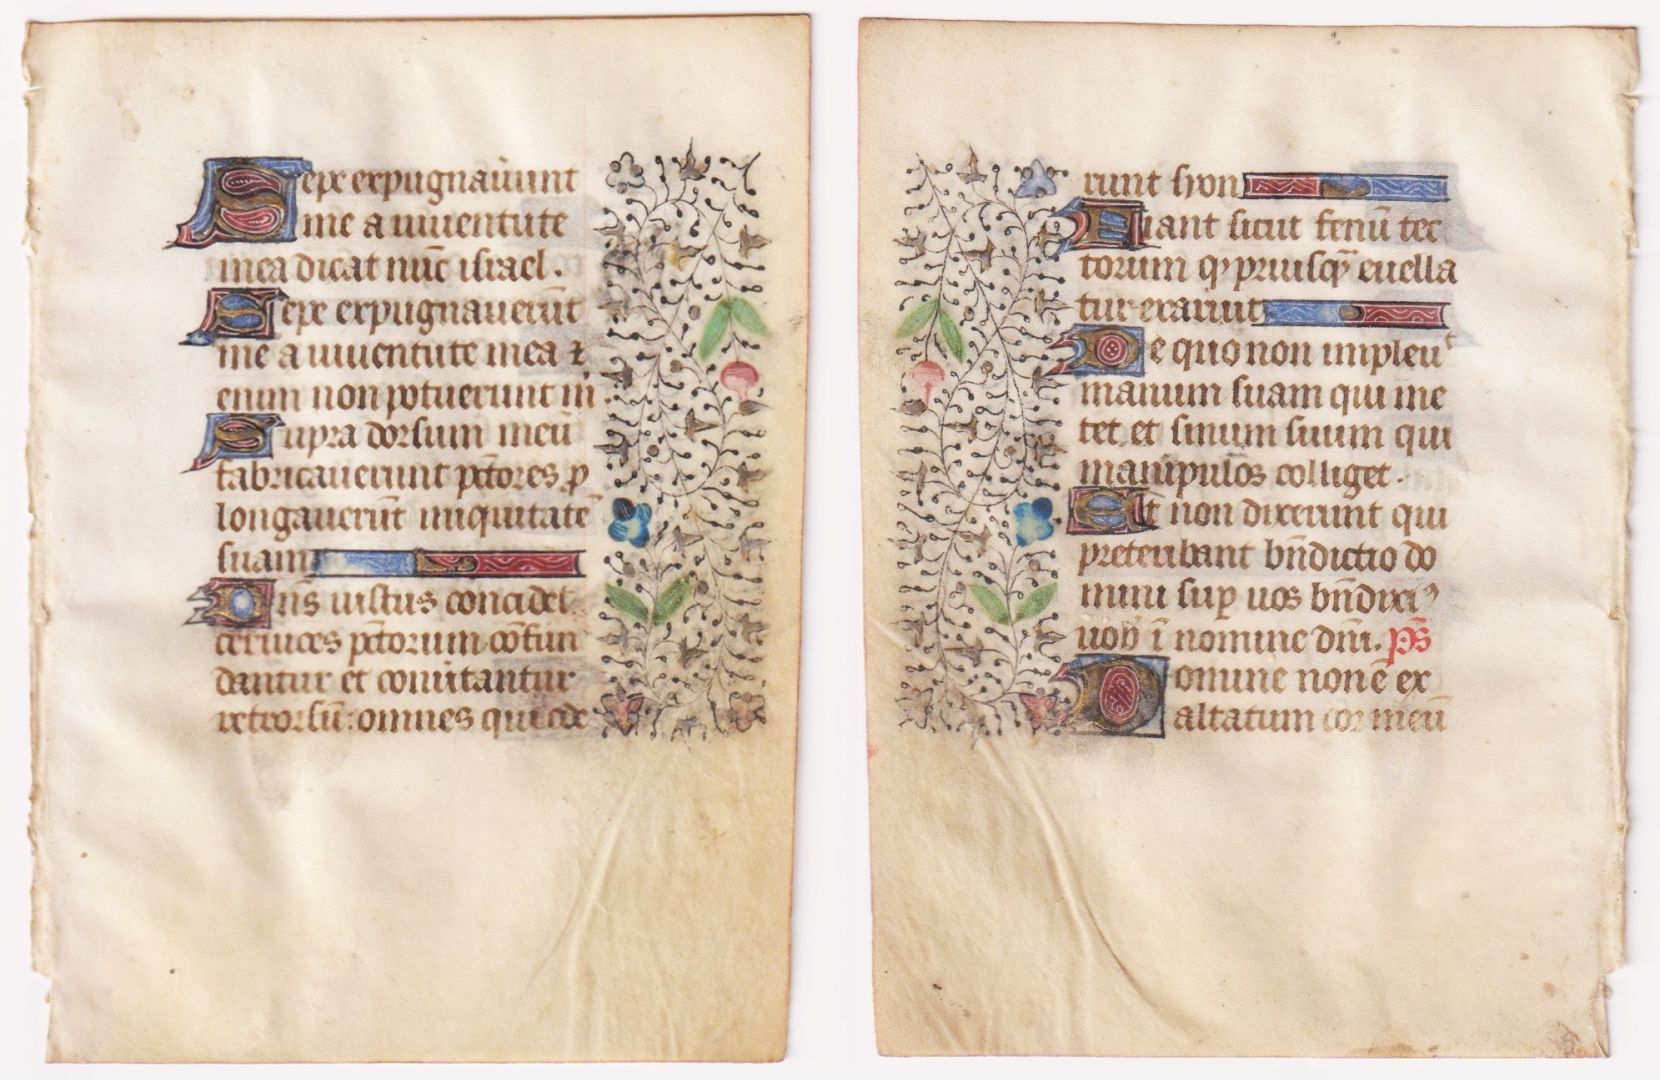 Sepe expugnauiunt
me a iuuentute
mea dicat nūc israel .
Sepe expugnauerūt
me a iuuentute mea ⁊
enim non potuerunt m̄
Supra dorsum meū
fabricauerunt pc̄tores ꝓ
longauerūt iniquitatē
suam
Dn̄s iustus concidet
ceruices pc̄torum cōfun
dantur et conuertantur
retrorsū: omnes qui ode
runt syon
Fiant sicut fenū tec
torum qꝫ priusqꝫ euella
tur exaruit
De quo non impleuᵗ
manum suam qui me
tet et sinum suum qui
manipulos colliget .
Et non dixerunt qui
preteribant bn̄dictio do
mini suꝑ uos bn̄dixiꝰ
uob ī nomine dn̄i . p̄s
Domine non ē ex
altatum cor meū